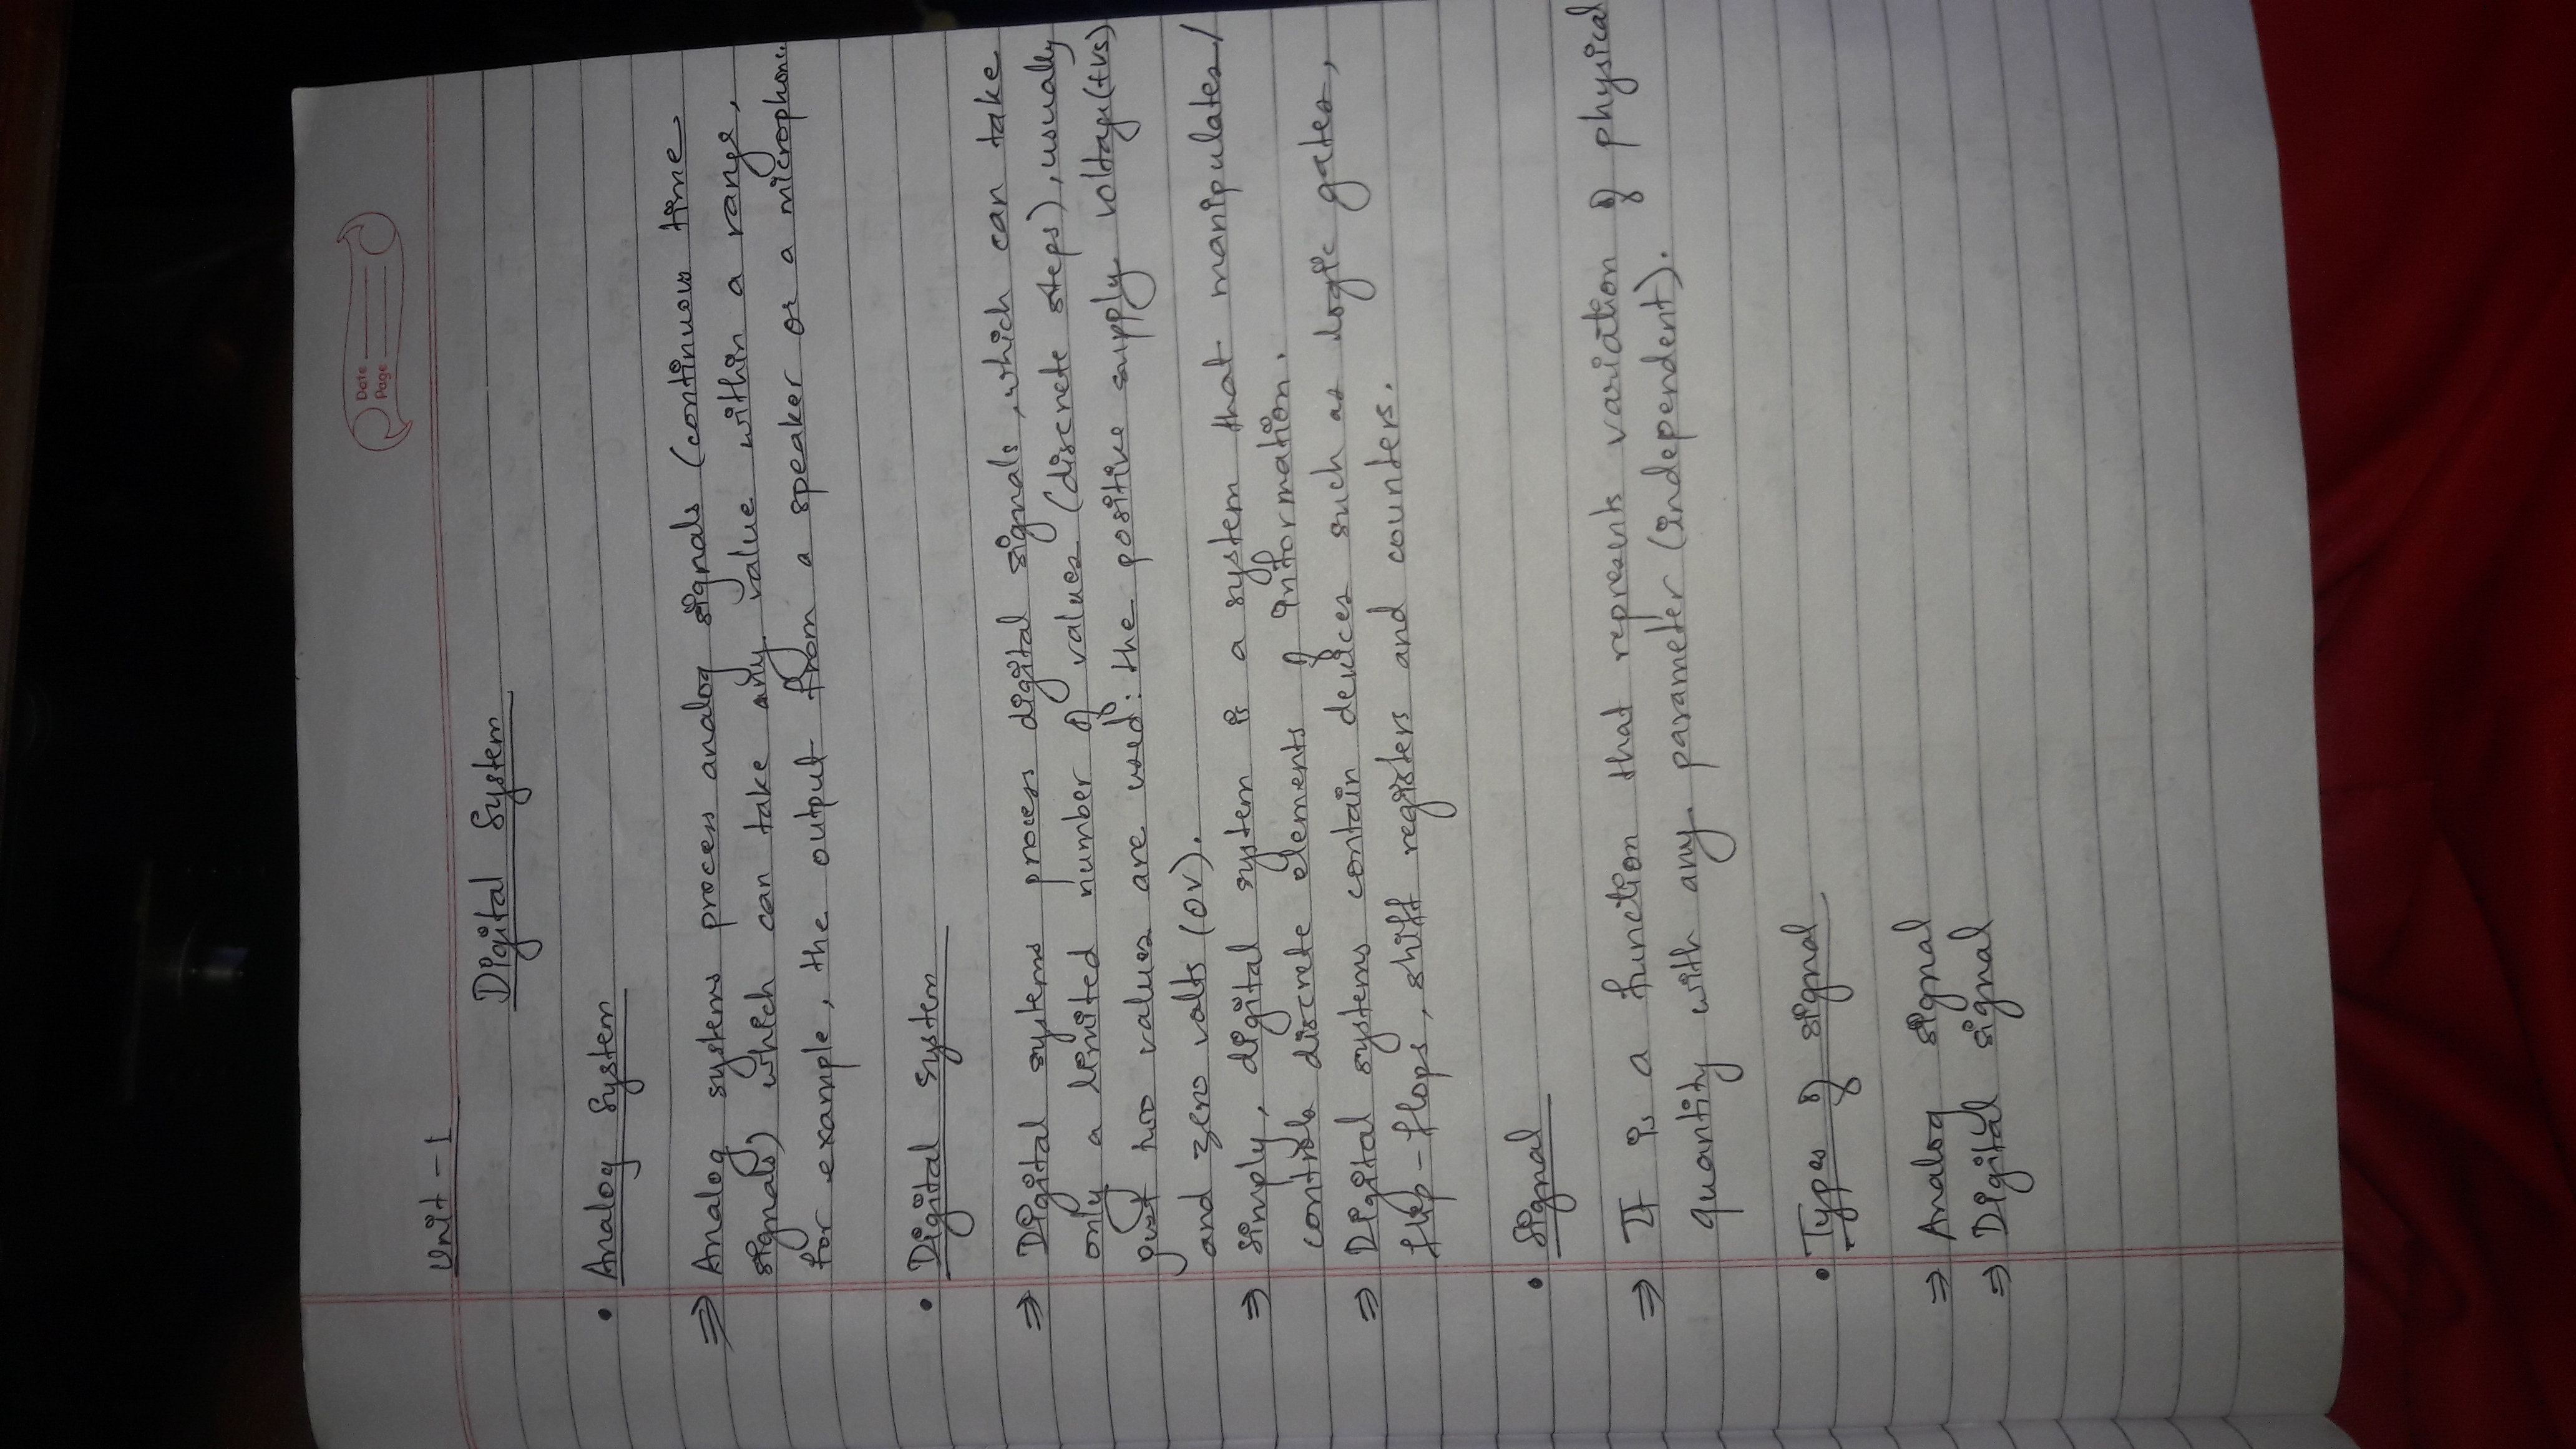 Date
Page
Unit - 1
Digital System
• Analog System
⇒ Analog systems process analog signals (continuous time
signals) which can take any value within a range,
for example, the output from a speaker or a microphone.
• Digital system
⇒ Digital systems process digital signals, which can take
only a limited number of values (discrete steps), usually
just two values are used: the positive supply voltage (+vs)
and zero volts (0v).
⇒ Simply, digital system is a system that manipulates/
controls discrete elements of information.
⇒ Digital systems contain devices such as logic gates,
flip-flops, shift registers and counters.
• Signal
⇒ It is a function that represents variation of physical
quantity with any parameter (independent).
• Types of signal
⇒ Analog signal
⇒ Digital signal